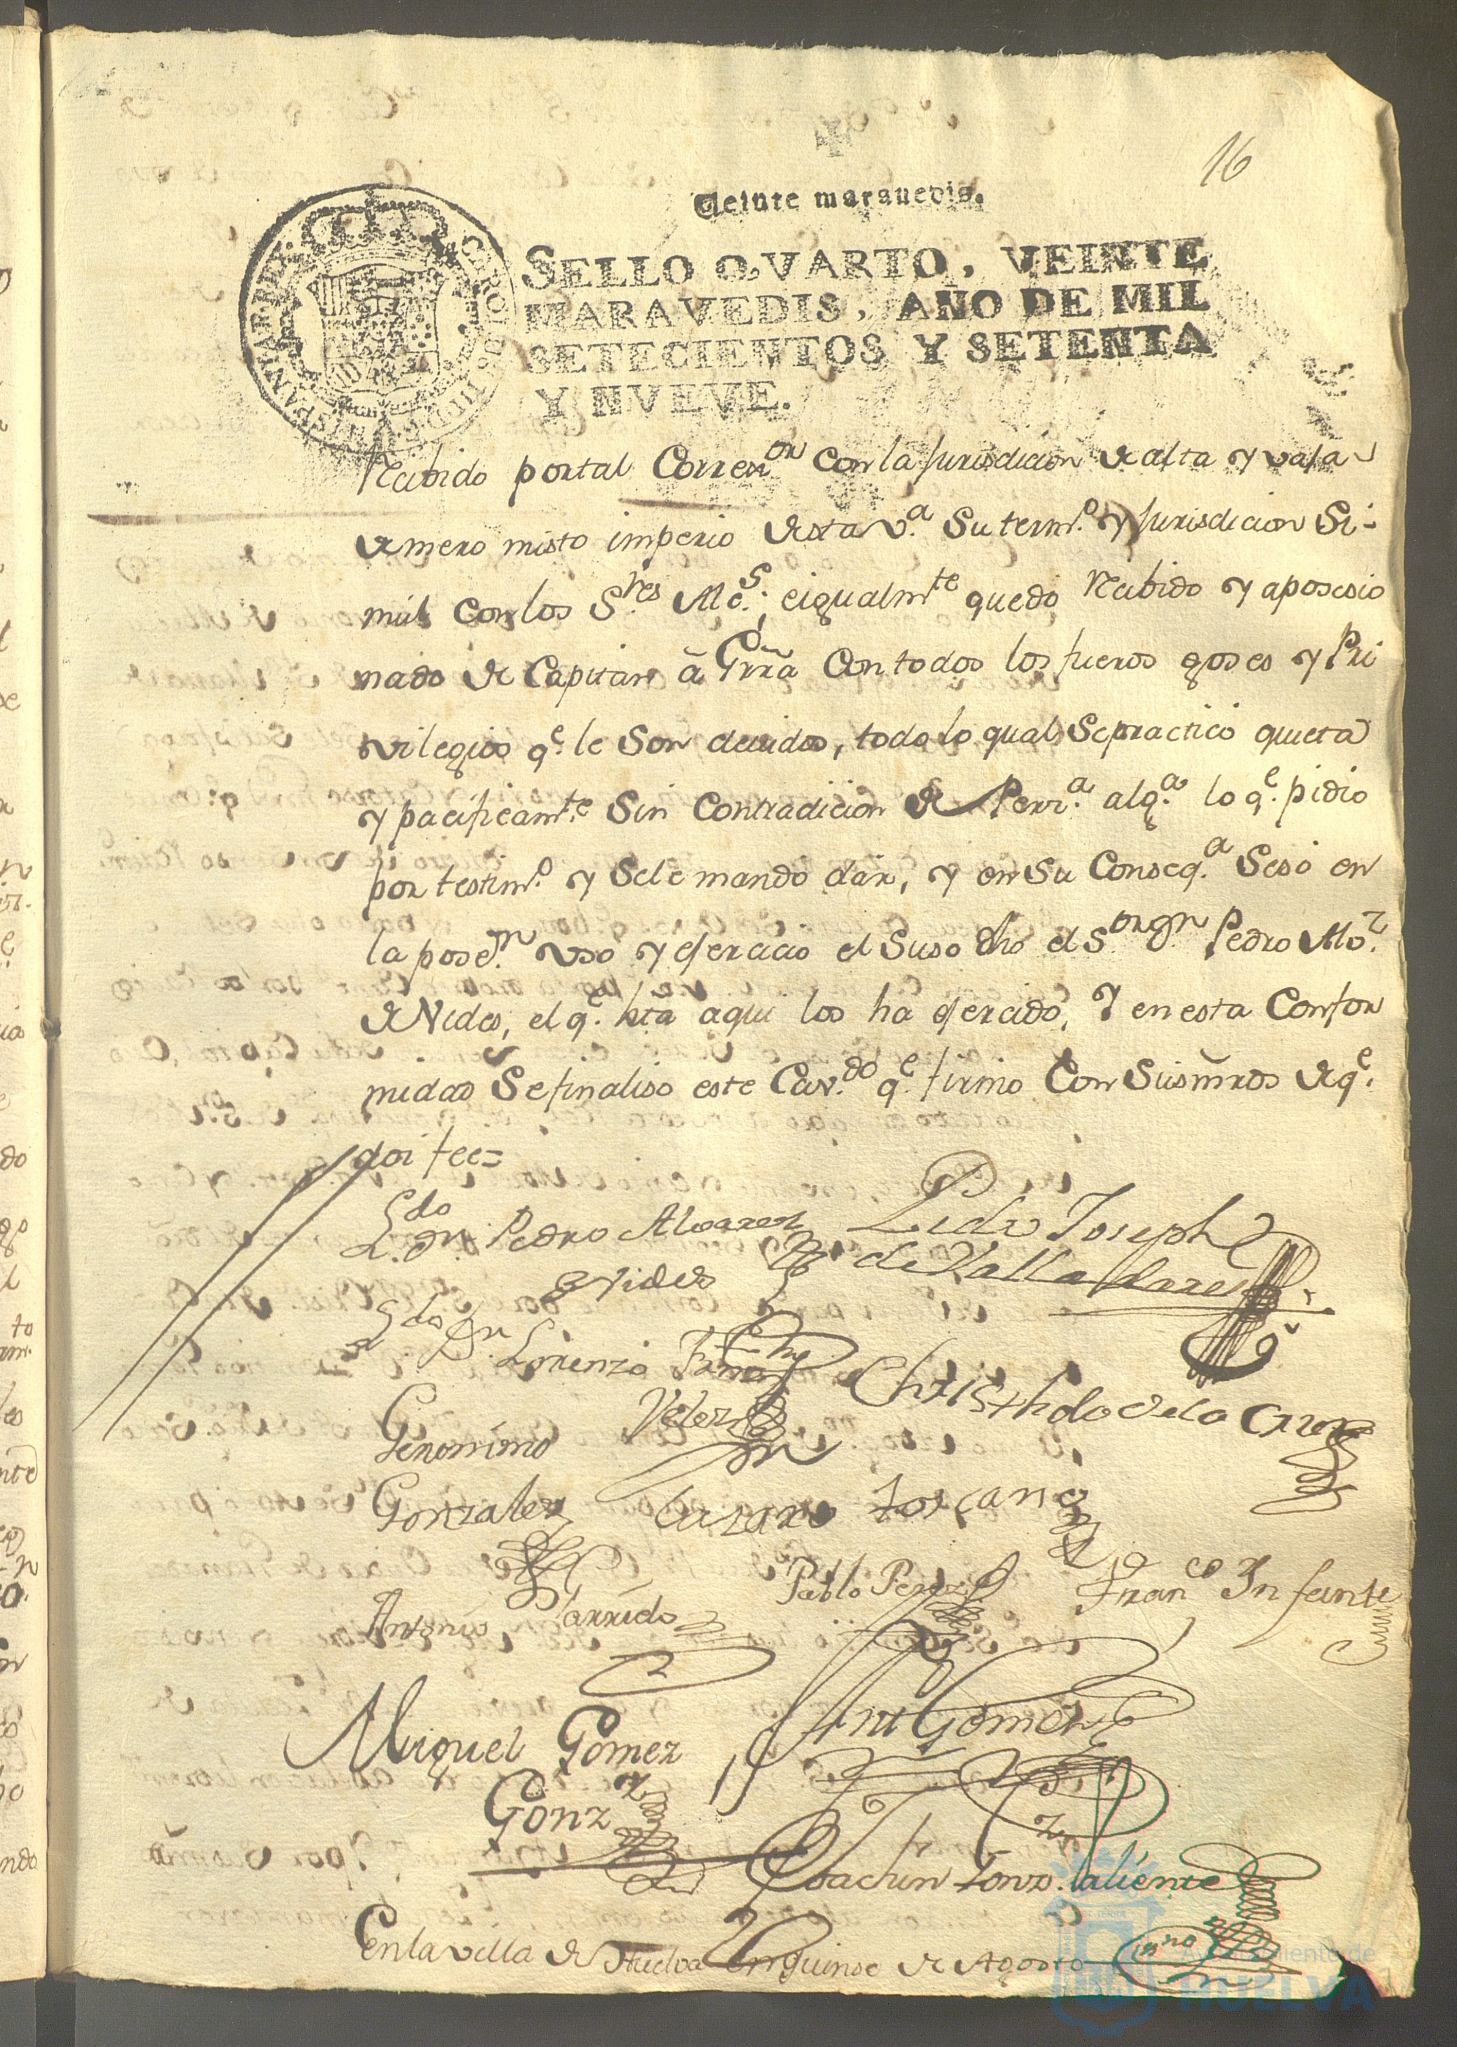 16
Veinte maravedis.
SELLO QVARTO, VEINTE
MARAVEDIS, AÑO DE MIL
SETECIENTOS Y SETENTA
Y NVEVE.
HISPANIAR. REX.
Recibido por tal Correxor con la Jurisdicion de alta y vaja
de mero misto imperio de esta va. Su termo. y Jurisdicion Si-
mul con los Sres Alces; e igualmte quedo recibido y aposesio
nado de Capitan â Grrã Con todos los fueros goses y Pri
vilegios qe. le Son devidos, todo lo qual Se practicó quieta
y pacificamte. Sin Contradicion de Perna. alga. lo qe. pidio
por testimo. y Se le mandó dar, y en Su Conseqa. Sesó en
la poseon. Uso y ejercicio el Suso dho el Sor Dn Pedro Alvz.
de Vides, el qe. hta aqui los ha ejercido, Y en esta Confor
midad Se finaliso este Cavdo. qe. firmo Con Sus mrds de qe.
doi fee=
Ldo. Dn. Pedro Alvarez
de Vides
Pedro Joseph
de Valladares
Ldo Dn. Lorenzo
Velez
Christhoval de la Cruz
Geronimo
Gonzalez
Lazaro Toscano
Antonio Garrido
Pablo Perez
Franco Infante
Miguel Gomez
Gonz
Ant Gomez
Joachin Gonz. Valiente
En la villa de Huelva en quinse de Agosto
Ayuntamiento de
HUELVA